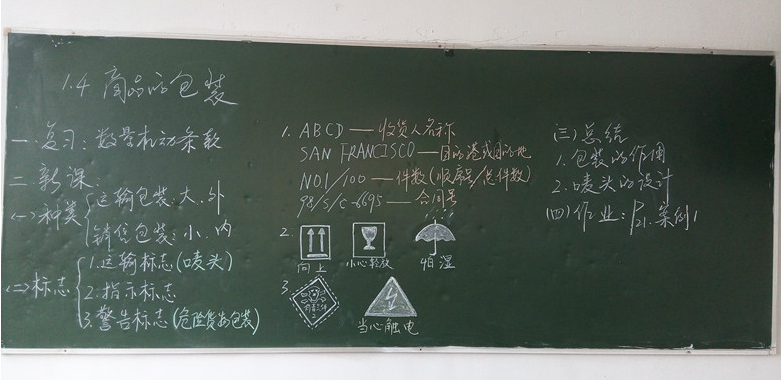 1.4 商品的包装
一.复习：数量机动条款
二.新课.
(一)种类
运输包装:大、外
销售包装:小、内
(二)标志
1.运输标志(唛头)
2.指示标志
3.警告标志(危险货物包装)
1. ABCD — 收货人名称
SAN FRANCISCO — 目的港或目的地
NO1/100 — 件数(顺序号/总件数)
98/S/C-6695 — 合同号
2.
向上 小心轻放 怕湿
3.
当心触电
(三)总结
1.包装的作用
2.唛头的设计
(四)作业:P21.案例1